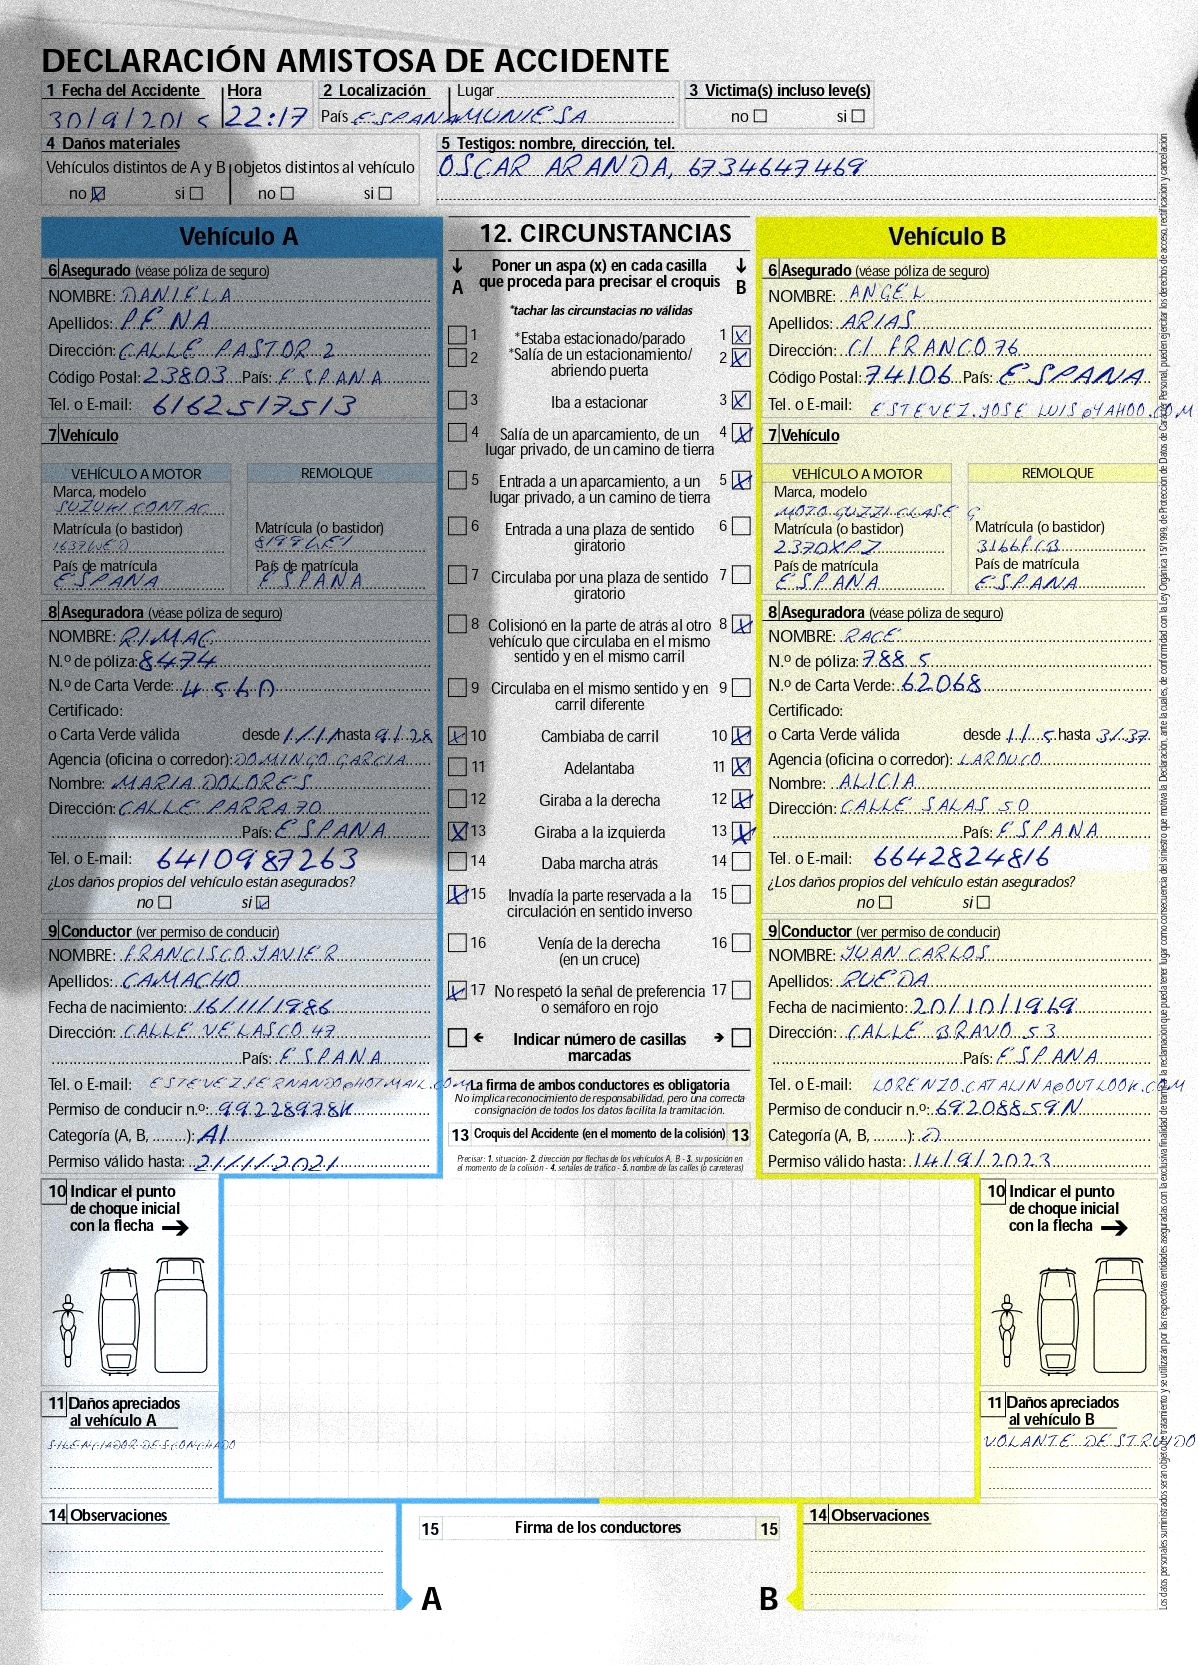 DECLARACIÓN AMISTOSA DE ACCIDENTE
1 Fecha del Accidente Hora 2 Localización Lugar 3 Victima(s) incluso leve(s)
30/9/2015 22:17 País ESPANA MUNIESA no si
4 Daños materiales
Vehículos distintos de A y B objetos distintos al vehículo
no si no si
5 Testigos: nombre, dirección, tel.
OSCAR ARANDA, 6734647469
Vehículo A
6 Asegurado (véase póliza de seguro)
NOMBRE: DANIELA
Apellidos: PENA
Dirección: CALLE PASTOR 2
Código Postal: 23803 País: ESPANA
Tel. o E-mail: 6162517513
7 Vehículo
VEHÍCULO A MOTOR REMOLQUE
Marca, modelo
SUZUKI CONTAC
Matrícula (o bastidor) Matrícula (o bastidor)
País de matrícula País de matrícula
ESPANA ESPANA
8 Aseguradora (véase póliza de seguro)
NOMBRE: RIMAC
N.º de póliza: 8474
N.º de Carta Verde: 4560
Certificado:
o Carta Verde válida desde 1/1/1 hasta 9/1/28
Agencia (oficina o corredor): DOMINGO GARCIA
Nombre: MARIA DOLORES
Dirección: CALLE PARRA 70
País: ESPANA
Tel. o E-mail: 6410987263
¿Los daños propios del vehículo están asegurados?
no si
9 Conductor (ver permiso de conducir)
NOMBRE: FRANCISCO JAVIER
Apellidos: CAMACHO
Fecha de nacimiento: 16/11/1986
Dirección: CALLE VELASCO 47
País: ESPANA
Tel. o E-mail: ESTEVEZFERNANDO@HOTMAIL.COM
Permiso de conducir n.º: 99228978K
Categoría (A, B, ........): A1
Permiso válido hasta: 21/1/2021
10 Indicar el punto
de choque inicial
con la flecha
11 Daños apreciados
al vehículo A
SILENCIADOR DESCONCHADO
14 Observaciones
12. CIRCUNSTANCIAS
Poner un aspa (x) en cada casilla
que proceda para precisar el croquis
A B
*tachar las circunstacias no válidas
1 *Estaba estacionado/parado 1
2 *Salía de un estacionamiento/ 2
abriendo puerta
3 Iba a estacionar 3
4 Salía de un aparcamiento, de un 4
lugar privado, de un camino de tierra
5 Entrada a un aparcamiento, a un 5
lugar privado, a un camino de tierra
6 Entrada a una plaza de sentido 6
giratorio
7 Circulaba por una plaza de sentido 7
giratorio
8 Colisionó en la parte de atrás al otro 8
vehículo que circulaba en el mismo
sentido y en el mismo carril
9 Circulaba en el mismo sentido y en 9
carril diferente
10 Cambiaba de carril 10
11 Adelantaba 11
12 Giraba a la derecha 12
13 Giraba a la izquierda 13
14 Daba marcha atrás 14
15 Invadía la parte reservada a la 15
circulación en sentido inverso
16 Venía de la derecha 16
(en un cruce)
17 No respetó la señal de preferencia 17
o semáforo en rojo
Indicar número de casillas
marcadas
La firma de ambos conductores es obligatoria
No implica reconocimiento de responsabilidad, pero una correcta
consignación de todos los datos facilita la tramitación.
13 Croquis del Accidente (en el momento de la colisión) 13
Precisar: 1. situación- 2. dirección por flechas de los vehículos A, B - 3. su posición en
el momento de la colisión - 4. señales de tráfico - 5. nombre de las calles (o carreteras)
15 Firma de los conductores 15
A B
Vehículo B
6 Asegurado (véase póliza de seguro)
NOMBRE: ANGEL
Apellidos: ARIAS
Dirección: C/ FRANCO 76
Código Postal: 74106 País: ESPANA
Tel. o E-mail: ESTEVEZ.JOSE LUIS@YAHOO.COM
7 Vehículo
VEHÍCULO A MOTOR REMOLQUE
Marca, modelo
MOTO GUZZI CLASE G
Matrícula (o bastidor) Matrícula (o bastidor)
2370XPZ 3166FCB
País de matrícula País de matrícula
ESPANA ESPANA
8 Aseguradora (véase póliza de seguro)
NOMBRE: RACE
N.º de póliza: 788 5
N.º de Carta Verde: 62068
Certificado:
o Carta Verde válida desde 1/1/5 hasta 3/37
Agencia (oficina o corredor): LARDUCO
Nombre: ALICIA
Dirección: CALLE SALAS 50
País: ESPANA
Tel. o E-mail: 6642824816
¿Los daños propios del vehículo están asegurados?
no si
9 Conductor (ver permiso de conducir)
NOMBRE: JUAN CARLOS
Apellidos: RUEDA
Fecha de nacimiento: 20/10/1969
Dirección: CALLE BRAVO 53
País: ESPANA
Tel. o E-mail: LORENZO.CATALINA@OUTLOOK.COM
Permiso de conducir n.º: 69208859N
Categoría (A, B, ........): D
Permiso válido hasta: 14/9/2023
10 Indicar el punto
de choque inicial
con la flecha
11 Daños apreciados
al vehículo B
VOLANTE DESTRUIDO
14 Observaciones